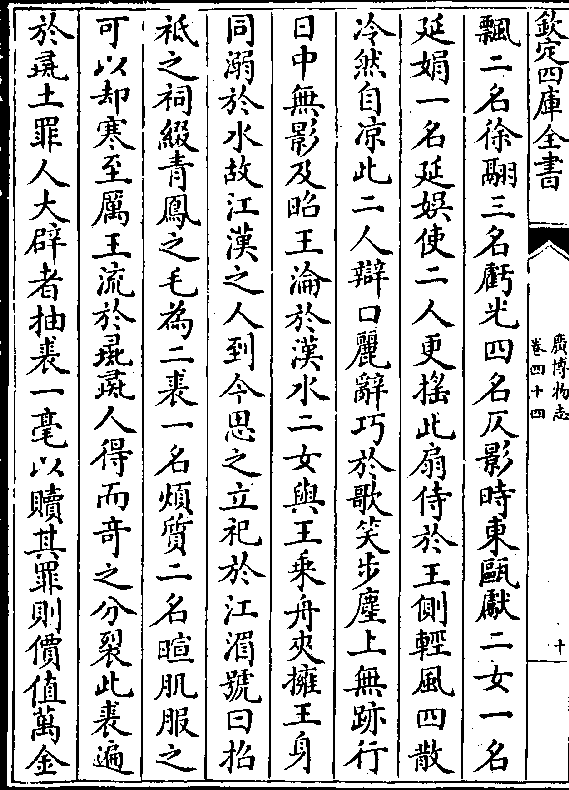 欽定四庫全書
廣博物志
卷四十四
十
飄二名徐翮三名虧光四名仄影時東甌獻二女一名
延娟一名延娱使二人更搖此扇侍於王側輕風四散
冷然自凉此二人辯口麗辭巧於歌笑步塵上無跡行
日中無影及昭王淪於漢水二女與王乗舟夾擁王身
同溺於水故江漢之人到今思之立祀於江湄號曰招
祗之祠綴青鳳之毛為二裘一名煩質二名暄肌服之
可以却寒至厲王流於彘彘人得而竒之分裂此裘遍
於彘土罪人大辟者抽裘一毫以贖其罪則價值萬金